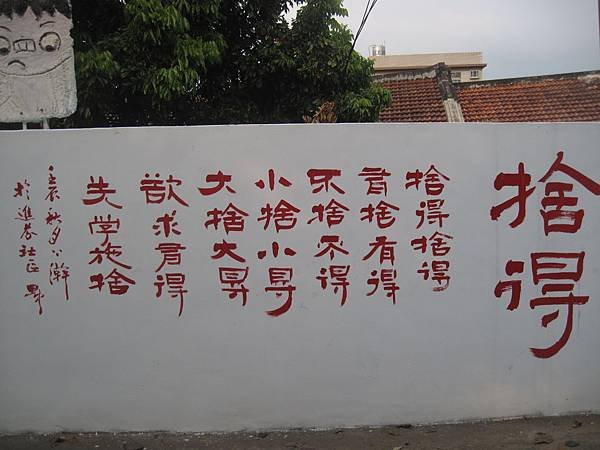 捨得
捨得捨得
有捨有得
不捨不得
小捨小得
大捨大得
欲求有得
先学施捨
壬辰秋月
於進巷社区